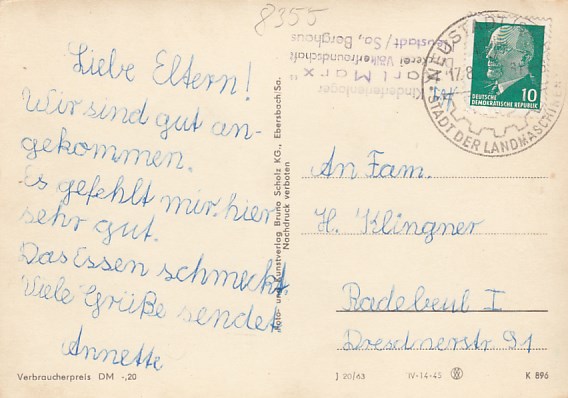 8355
Liebe Eltern!
Wir sind gut an-
gekommen.
Es gefehlt mir hier
sehr gut.
Das Essen schmeckt.
Viele Grüße sendet
Annette
Verbraucherpreis DM -,20
Foto- und Kunstverlag Bruno Scholz KG., Ebersbach/Sa.
Nachdruck verboten
Kinderferienlager
"Karl Marx"
Druckerei Völkerfreundschaft
Neustadt / Sa., Berghaus
NEUSTADT
17.8
STADT DER LANDMASCHINEN
DEUTSCHE
DEMOKRATISCHE REPUBLIK
10
An Fam.
H. Klingner
Radebeul I
Dresdnerstr. 91
J 20/63
IV-14-45
K 896